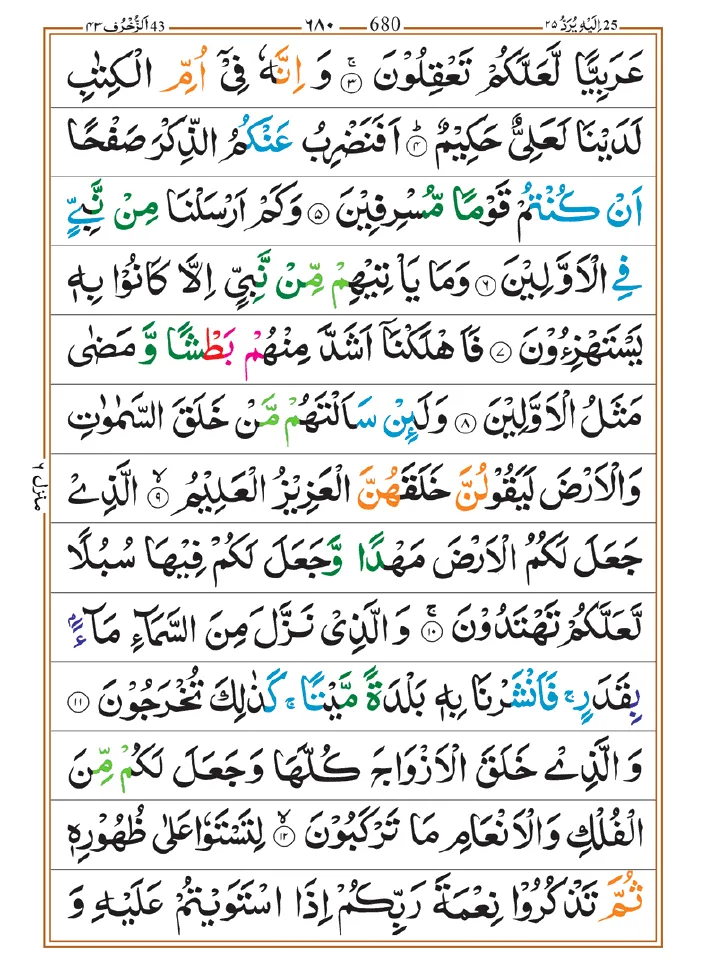 اَلزُّخْرُف 43 ۴۳ 680 ۶۸۰ 25 اِلَیْهِ یُرَدُّ ۲۵
عَرَبِیًّا لَّعَلَّكُمْ تَعْقِلُوْنَ ۚ۳ وَ اِنَّهٗ فِیْۤ اُمِّ الْكِتٰبِ
لَدَیْنَا لَعَلِیٌّ حَكِیْمٌ ؕ۴ اَفَنَضْرِبُ عَنْكُمُ الذِّكْرَ صَفْحًا
اَنْ كُنْتُمْ قَوْمًا مُّسْرِفِیْنَ ۵ وَكَمْ اَرْسَلْنَا مِنْ نَّبِیٍّ
فِی الْاَوَّلِیْنَ ۶ وَمَا یَاْتِیْهِمْ مِّنْ نَّبِیٍّ اِلَّا كَانُوْا بِهٖ
یَسْتَهْزِءُوْنَ ۷ فَاَهْلَكْنَاۤ اَشَدَّ مِنْهُمْ بَطْشًا وَّ مَضٰی
مَثَلُ الْاَوَّلِیْنَ ۸ وَلَىِٕنْ سَاَلْتَهُمْ مَّنْ خَلَقَ السَّمٰوٰتِ
وَالْاَرْضَ لَیَقُوْلُنَّ خَلَقَهُنَّ الْعَزِیْزُ الْعَلِیْمُ ۙ۹ الَّذِیْ
جَعَلَ لَكُمُ الْاَرْضَ مَهْدًا وَّجَعَلَ لَكُمْ فِیْهَا سُبُلًا
لَّعَلَّكُمْ تَهْتَدُوْنَ ۚ۱۰ وَالَّذِیْ نَزَّلَ مِنَ السَّمَآءِ مَآءًۢ
بِقَدَرٍ ۚ فَاَنْشَرْنَا بِهٖ بَلْدَةً مَّیْتًا ۚ كَذٰلِكَ تُخْرَجُوْنَ ۱۱
وَالَّذِیْ خَلَقَ الْاَزْوَاجَ كُلَّهَا وَجَعَلَ لَكُمْ مِّنَ
الْفُلْكِ وَالْاَنْعَامِ مَا تَرْكَبُوْنَ ۙ۱۲ لِتَسْتَوٗا عَلٰی ظُهُوْرِهٖ
ثُمَّ تَذْكُرُوْا نِعْمَةَ رَبِّكُمْ اِذَا اسْتَوَیْتُمْ عَلَیْهِ وَ
منزل ۶